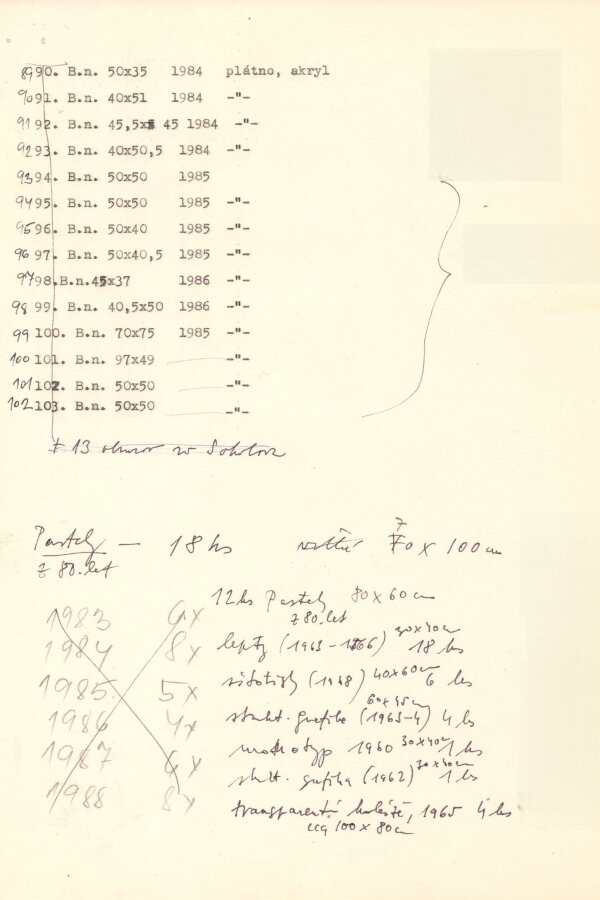 89 90. B.n. 50x35 1984 plátno, akryl
90 91. B.n. 40x51 1984 -"-
91 92. B.n. 45,5x 45 1984 -"-
92 93. B.n. 40x50,5 1984 -"-
93 94. B.n. 50x50 1985
94 95. B.n. 50x50 1985 -"-
95 96. B.n. 50x40 1985 -"-
96 97. B.n. 50x40,5 1985 -"-
97 98. B.n. 45x37 1986 -"-
98 99. B.n. 40,5x50 1986 -"-
99 100. B.n. 70x75 1985 -"-
100 101. B.n. 97x49 -"-
101 102. B.n. 50x50 -"-
102 103. B.n. 50x50 -"-
+ 13 w
Pastely — 18 ks 70 x 100 cm
z 80. let
12 ks Pastely 80x60 cm
z 80. let
1983 6x
lepty (1963-1966) 30x40cm 18 ks
1984 8x
(1968) 40x60cm 6 ks
1985 5x
60x45cm
strukt. grafika (1963-4) 4 ks
1986 4x
monotyp 1960 30x40cm 1 ks
1987 6x
strukt. grafika (1962) 30x40cm 1 ks
1988 8x
transparentní koláže, 1965 4 ks
cca 100x80cm